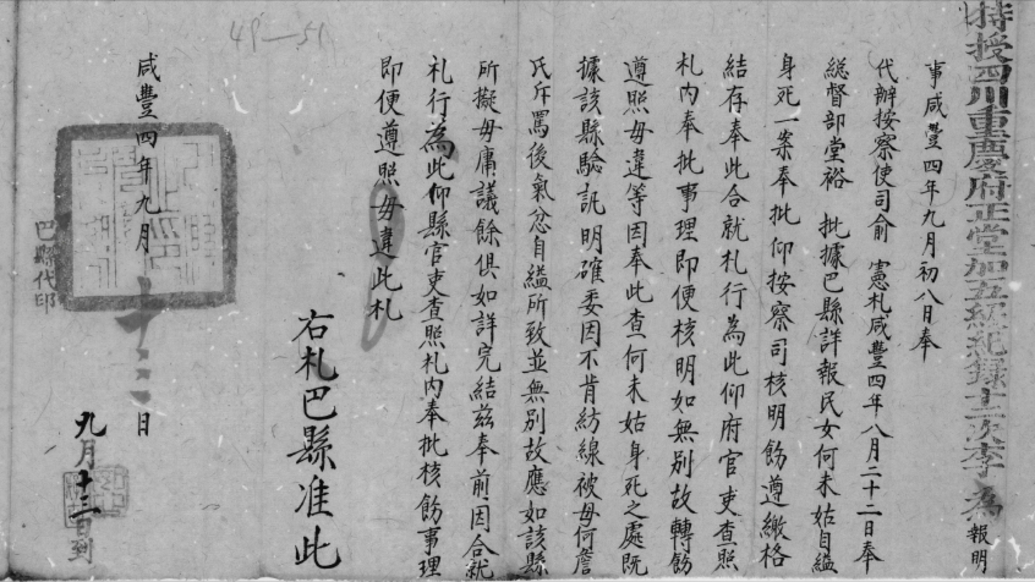 特授四川重慶府正堂加五級紀錄十二次李為報明
事咸豐四年九月初八日奉
代辦按察使司俞 憲札咸豐四年八月二十二日奉
総督部堂裕 批據巴縣詳報民女何未姑自縊
身死一案奉批仰按察司核明飭遵繳格
結存奉此合就札行為此仰府官吏查照
札內奉批事理即便核明如無別故轉飭
遵照毋違等因奉此查何未姑身死之處既
據該縣驗訊明確委因不肯紡線被母何詹
氏斥罵後氣忿自縊所致並無別故應如該縣
所擬毋庸議餘俱如詳完結茲奉前因合就
札行為此仰縣官吏查照札內奉批核飭事理
即便遵照毋違此札
右札巴縣准此
咸豐四年九月十二日
九月十三日到
巴縣代印